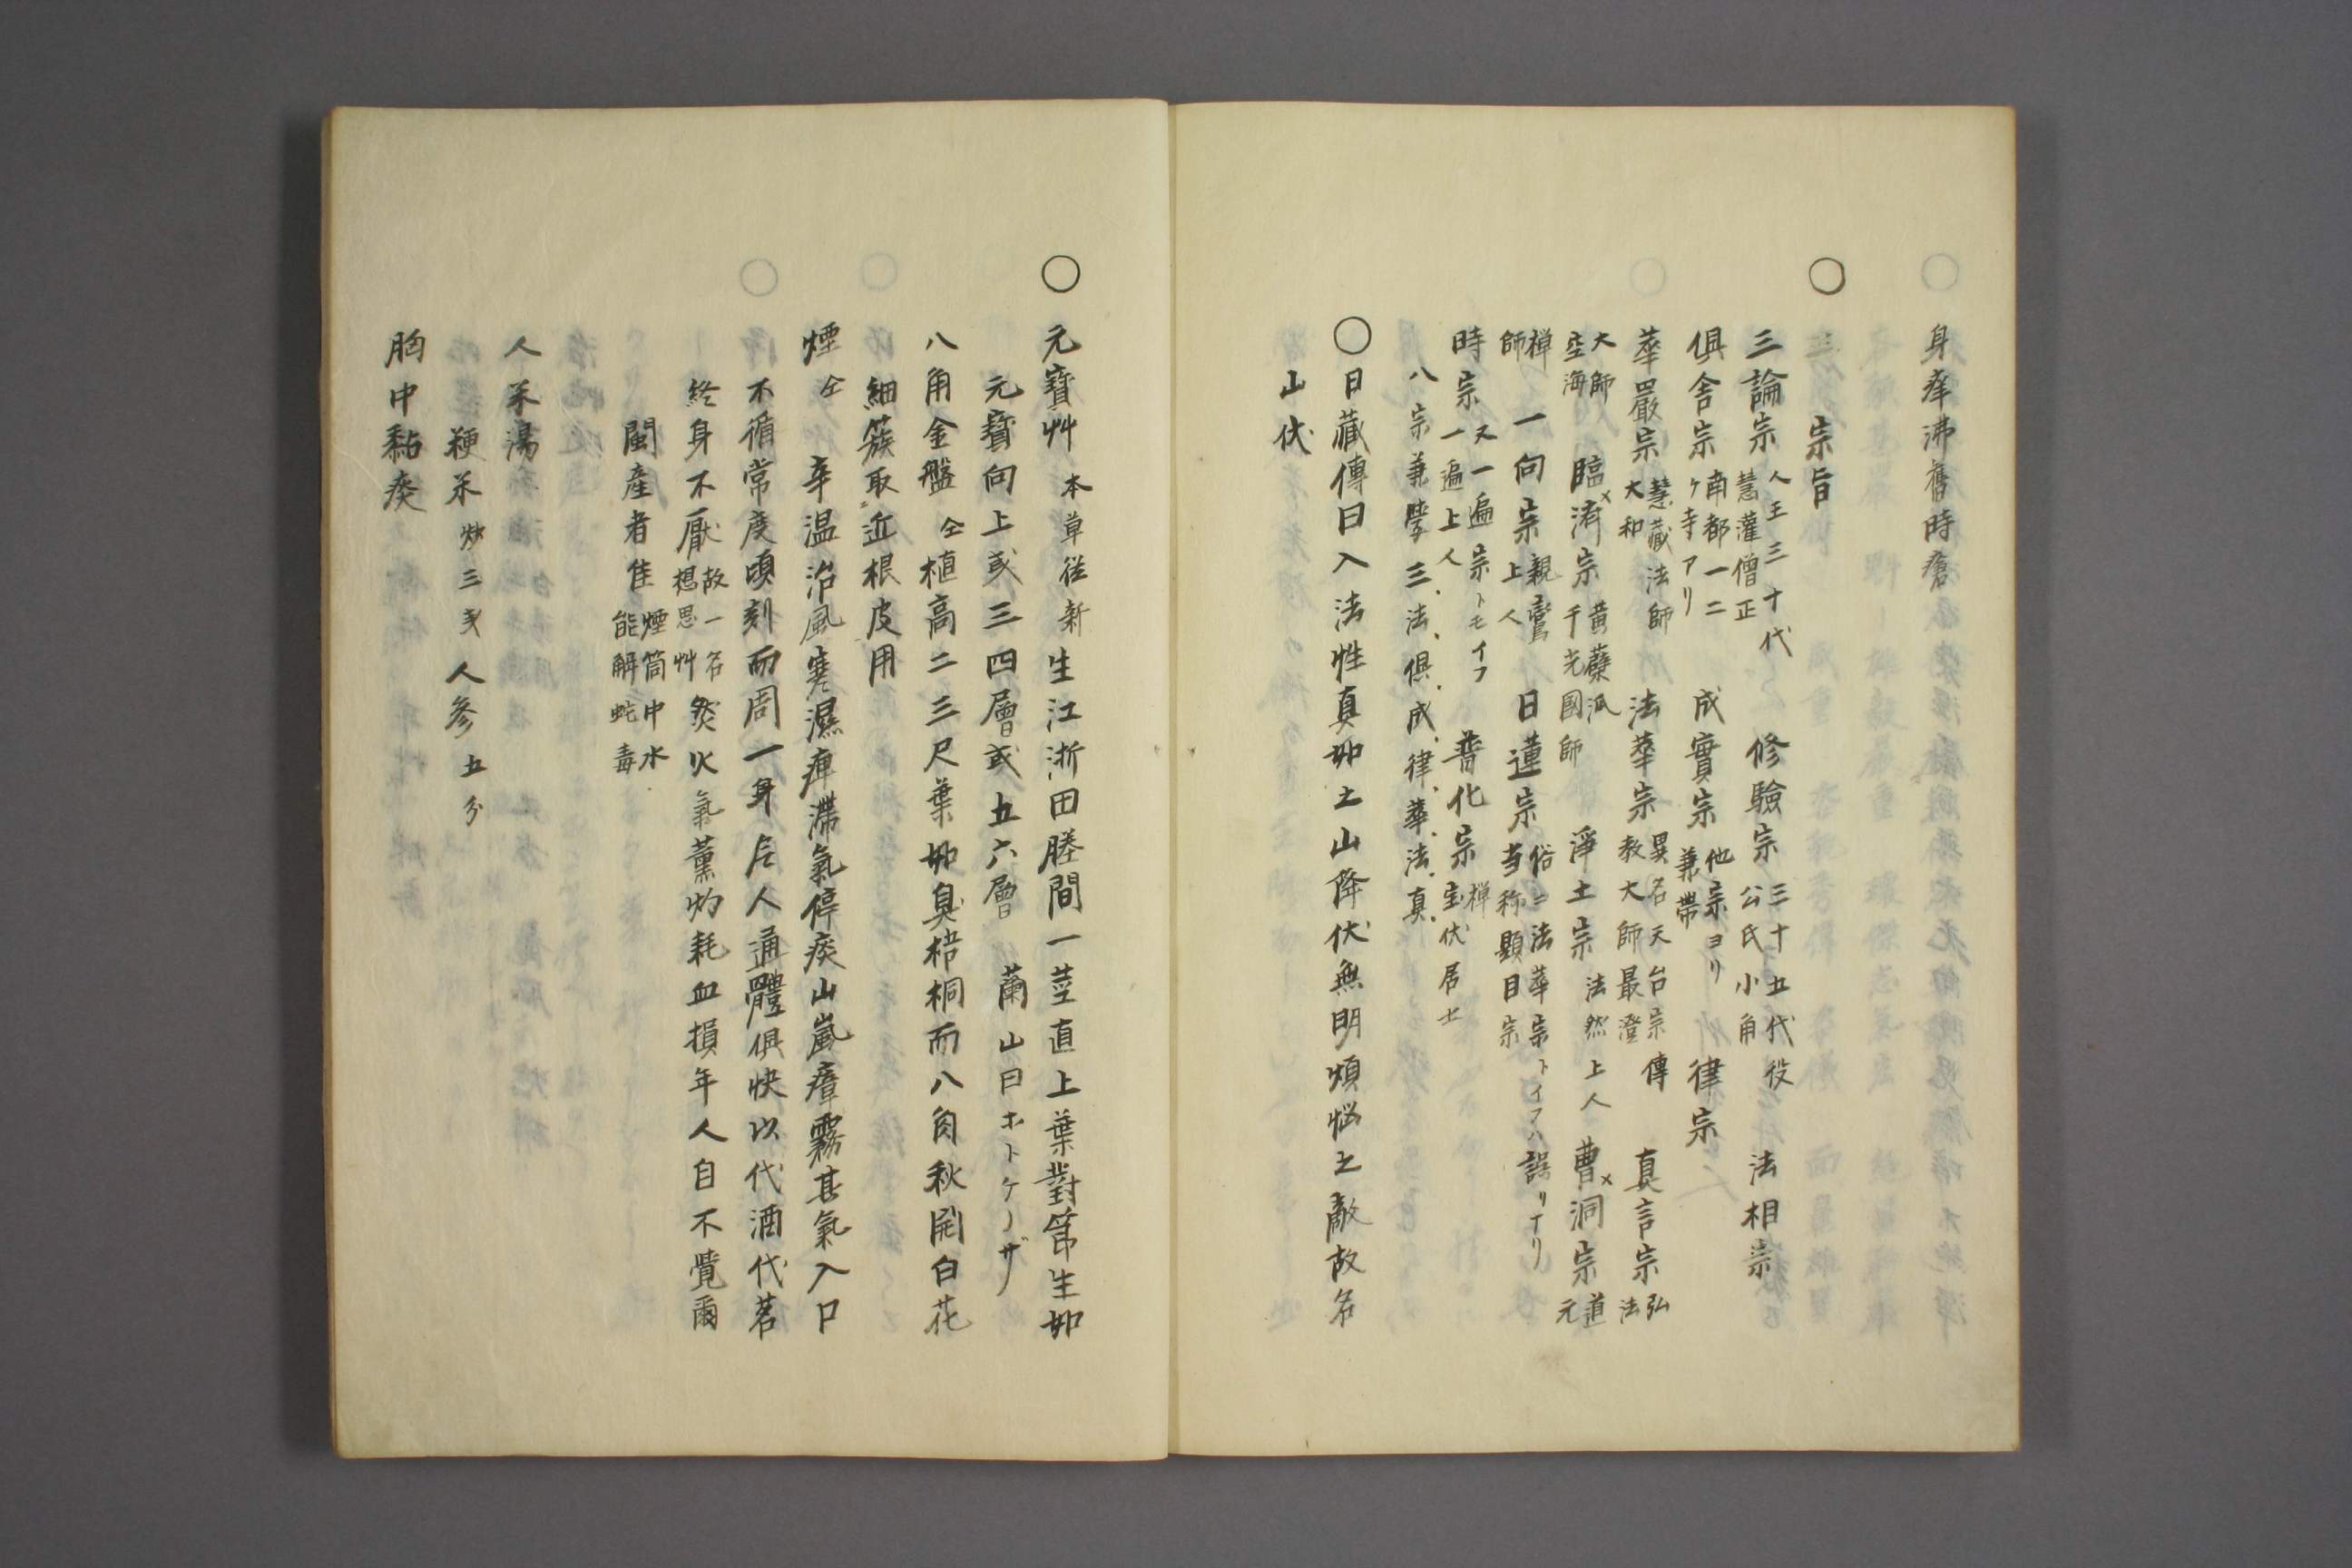 身痒沸舊時瘡
○ 宗旨
三論宗 人王三十代 慧灌僧正 修驗宗 三十五代役 公氏小角 法相宗
俱舎宗 南都一二 ヶ寺アリ 成實宗 他宗ヨリ 兼帶 律宗
華嚴宗 慧藏法師 大和 法華宗 異名天台宗傳 教大師最澄 真言宗 弘法
大師 空海 臨濟宗 黄蘗派 千光國師 淨土宗 法然上人 曹洞宗 道元
禅師 一向宗 親鸞 上人 日蓮宗 俗ニ法華宗トイフハ誤リナリ 当称顕目宗
時宗 又一遍宗トモイフ 一遍上人 普化宗 禅 宝伏居士
八宗兼學三法俱成律華法真
○日藏傳曰入法性真如之山降伏無明煩悩之敵故名
山伏
○ 元寶艸 本草從新 生江浙田塍間一莖直上葉對節生如
元寶向上或三四層或五六層 蘭山曰ホトケノザ
八角金盤 仝 植高二三尺葉如臭梧桐而八角秋開白花
細簇取近根皮用
煙 仝 辛温治風寒濕痺滯氣停痰山嵐瘴霧其氣入口
不循常度頃刻而周一身后人通體俱快以代酒代茗
終身不厭 故一名 想思艸 然火氣薰灼耗血損年人自不覺爾
閩産者佳 煙筒中水 能解蛇毒
人米湯
粳米 炒三戋 人參 五分
胸中黏痰